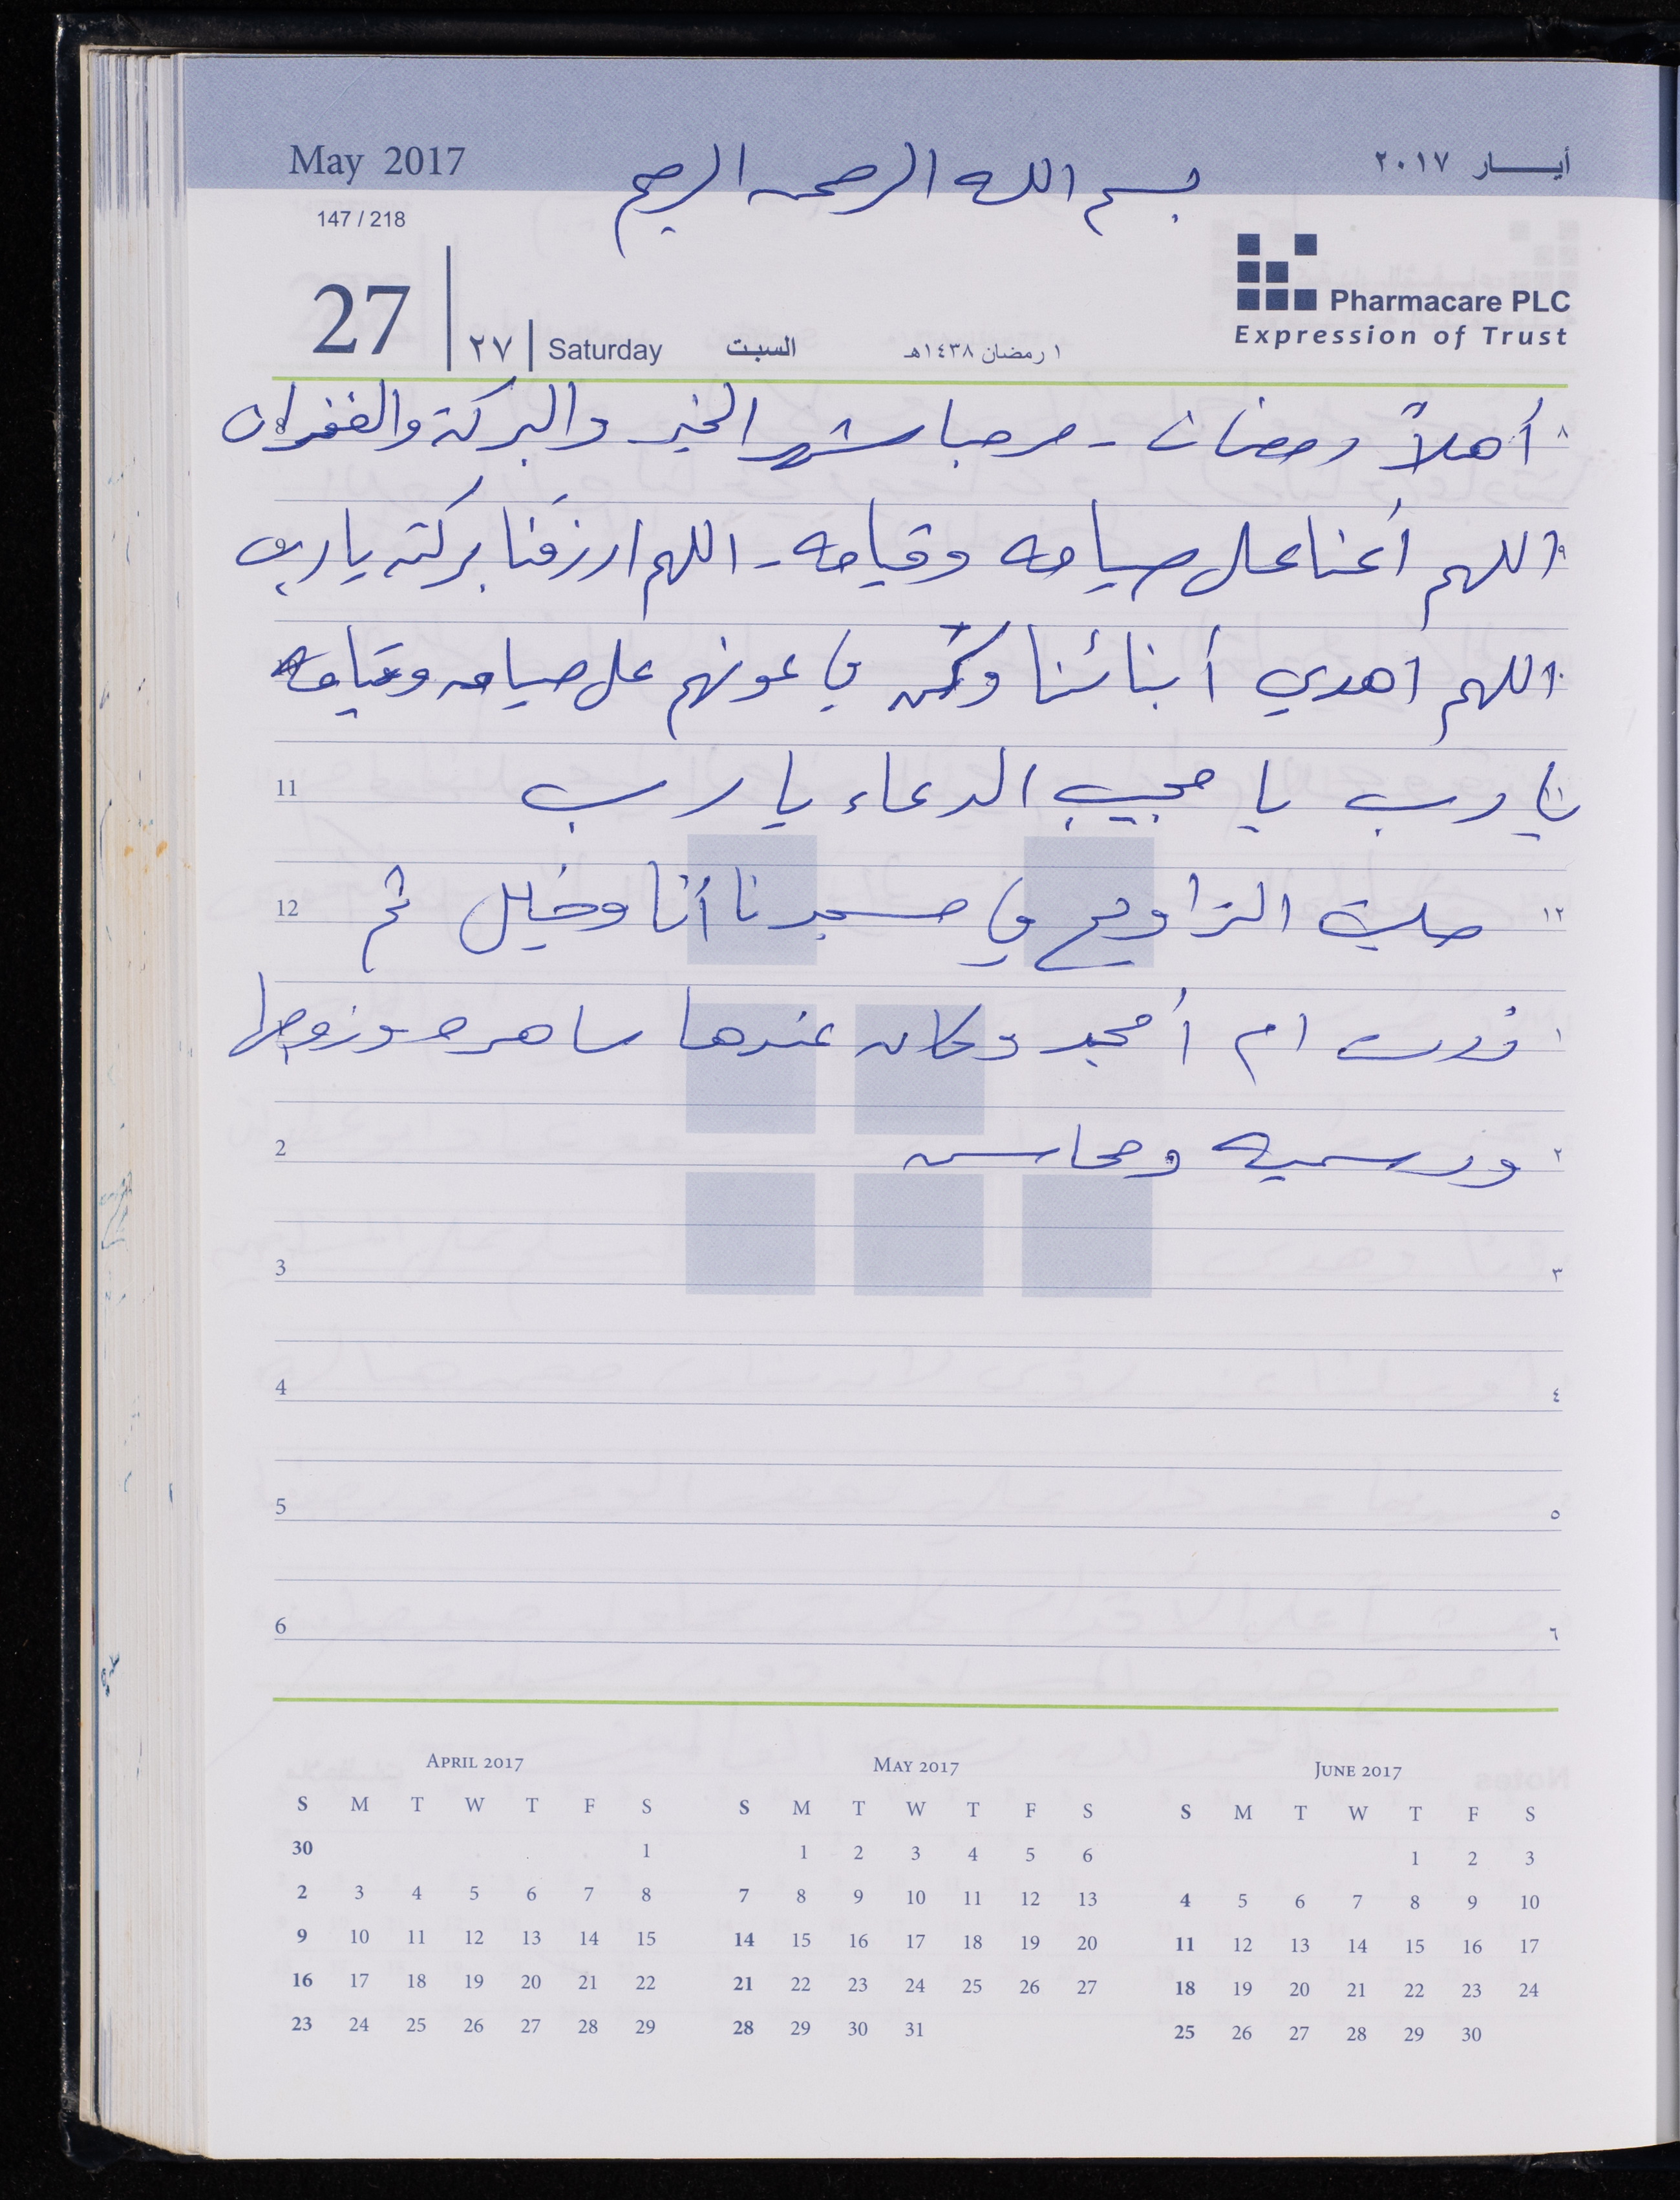 May 2017
أيـــار ٢٠١٧
بسم الله الرحمن الرحيم
147 / 218
27
٢٧
Saturday
السبت
١ رمضان ١٤٣٨هـ
Pharmacare PLC
Expression of Trust
٨ أهلاً رمضان - مرحبا شهر الخير والبركة والغفران
٩ اللهم أعنا على صيامه وقيامه - اللهم ارزقنا بركته يا رب
اللهم اهدي أبنائنا وكن في عونهم على صيامه وقيامه
11 يا رب يا مجيب الدعاء يا رب
12 صليت التراويح في مسجدنا أنا وخليل ثم ١٢
١ زرت ام أمجد وكان عندها ساهره وزوجها
2 ورسميه ومحاسن ٢
3 ٣
4 ٤
5 ٥
6 ٦
April 2017
S M T W T F S
30 1
2 3 4 5 6 7 8
9 10 11 12 13 14 15
16 17 18 19 20 21 22
23 24 25 26 27 28 29
May 2017
S M T W T F S
1 2 3 4 5 6
7 8 9 10 11 12 13
14 15 16 17 18 19 20
21 22 23 24 25 26 27
28 29 30 31
June 2017
S M T W T F S
1 2 3
4 5 6 7 8 9 10
11 12 13 14 15 16 17
18 19 20 21 22 23 24
25 26 27 28 29 30